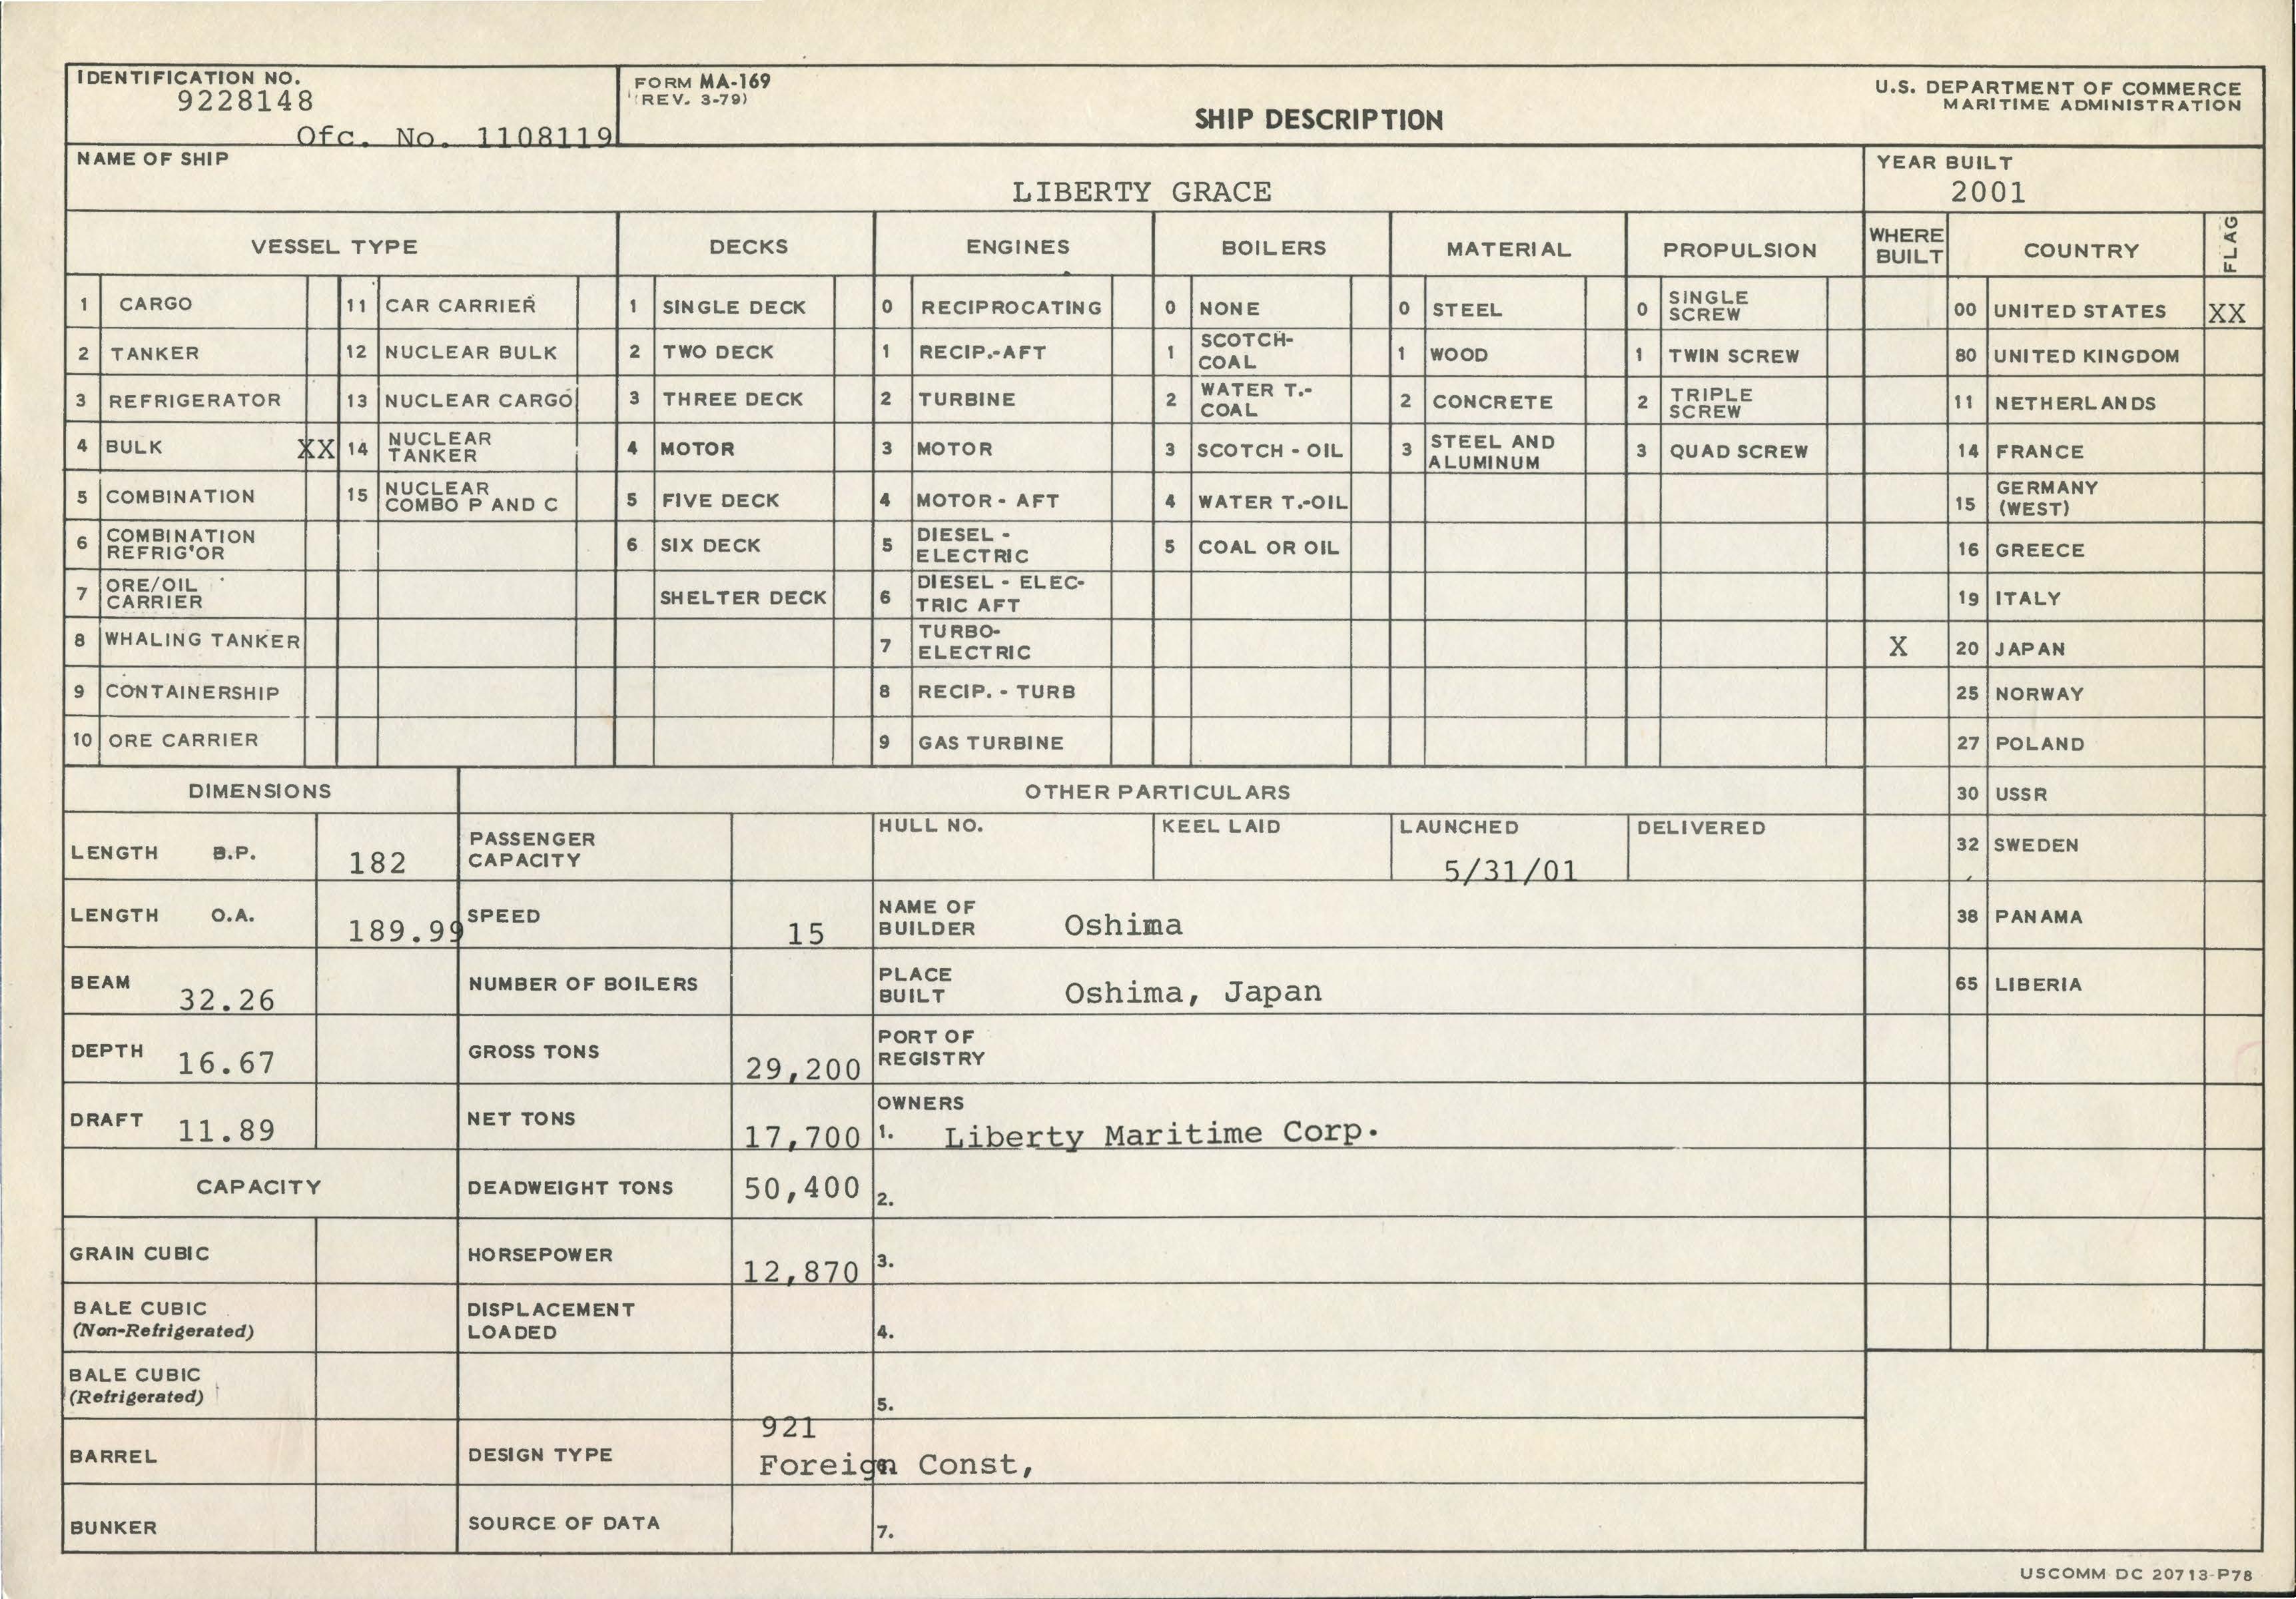 IDENTIFICATION NO.
9228148
Ofc. No. 1108119
FORM MA-169
(REV. 3-79)
SHIP DESCRIPTION
U.S. DEPARTMENT OF COMMERCE
MARITIME ADMINISTRATION
NAME OF SHIP
LIBERTY GRACE
YEAR BUILT
2001
VESSEL TYPE DECKS ENGINES BOILERS MATERIAL PROPULSION WHERE BUILT COUNTRY FLAG
1 CARGO 11 CAR CARRIER 1 SINGLE DECK 0 RECIPROCATING 0 NONE 0 STEEL 0 SINGLE SCREW 00 UNITED STATES XX
2 TANKER 12 NUCLEAR BULK 2 TWO DECK 1 RECIP.-AFT 1 SCOTCH-COAL 1 WOOD 1 TWIN SCREW 80 UNITED KINGDOM
3 REFRIGERATOR 13 NUCLEAR CARGO 3 THREE DECK 2 TURBINE 2 WATER T.-COAL 2 CONCRETE 2 TRIPLE SCREW 11 NETHERLANDS
4 BULK XX 14 NUCLEAR TANKER 4 MOTOR 3 MOTOR 3 SCOTCH - OIL 3 STEEL AND ALUMINUM 3 QUAD SCREW 14 FRANCE
5 COMBINATION 15 NUCLEAR COMBO P AND C 5 FIVE DECK 4 MOTOR - AFT 4 WATER T.-OIL 15 GERMANY (WEST)
6 COMBINATION REFRIG'OR 6 SIX DECK 5 DIESEL - ELECTRIC 5 COAL OR OIL 16 GREECE
7 ORE/OIL CARRIER SHELTER DECK 6 DIESEL - ELEC-TRIC AFT 19 ITALY
8 WHALING TANKER 7 TURBO-ELECTRIC X 20 JAPAN
9 CONTAINERSHIP 8 RECIP. - TURB 25 NORWAY
10 ORE CARRIER 9 GAS TURBINE 27 POLAND
DIMENSIONS OTHER PARTICULARS 30 USSR
LENGTH B.P. 182 PASSENGER CAPACITY HULL NO. KEEL LAID LAUNCHED 5/31/01 DELIVERED 32 SWEDEN
LENGTH O.A. 189.99 SPEED 15 NAME OF BUILDER Oshima 38 PANAMA
BEAM 32.26 NUMBER OF BOILERS PLACE BUILT Oshima, Japan 65 LIBERIA
DEPTH 16.67 GROSS TONS 29,200 PORT OF REGISTRY
DRAFT 11.89 NET TONS 17,700 OWNERS 1. Liberty Maritime Corp.
CAPACITY DEADWEIGHT TONS 50,400 2.
GRAIN CUBIC HORSEPOWER 12,870 3.
BALE CUBIC (Non-Refrigerated) DISPLACEMENT LOADED 4.
BALE CUBIC (Refrigerated) 5.
BARREL DESIGN TYPE 921 Foreign Const,
BUNKER SOURCE OF DATA 7.
USCOMM DC 20713-P78